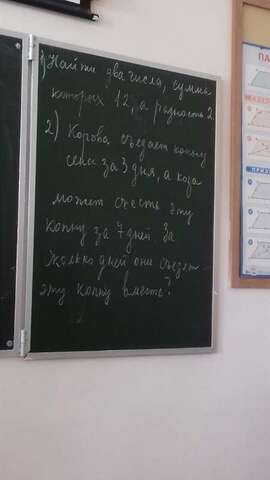 1) Найти два числа, сумма
которых 12, а разность 2
2) Корова съедает копну
сена за 3 дня, а коза
может съесть эту
копну за 7 дней. За
сколько дней они съедят
эту копну вместе?
ПА